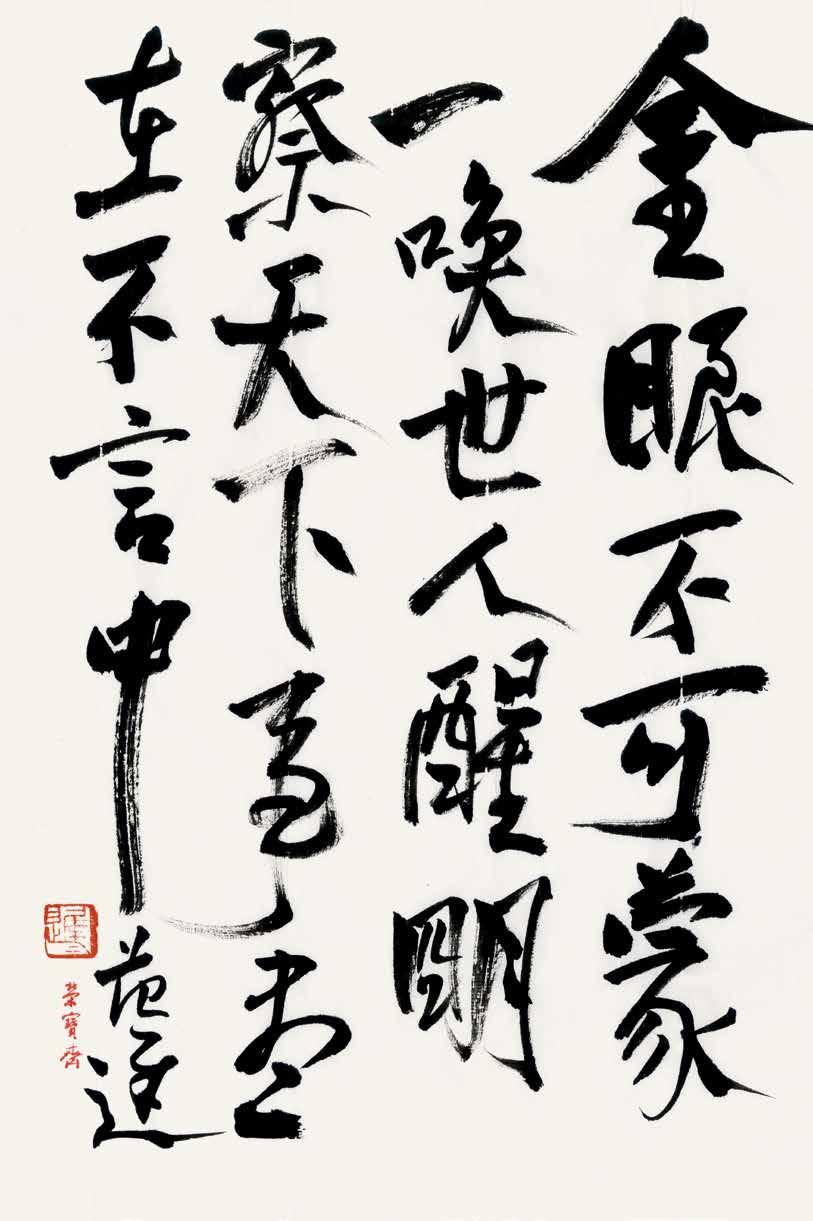 金眼不可蒙
一唤世人醒明
察天下事尽
在不言中
范迟
荣寶斋